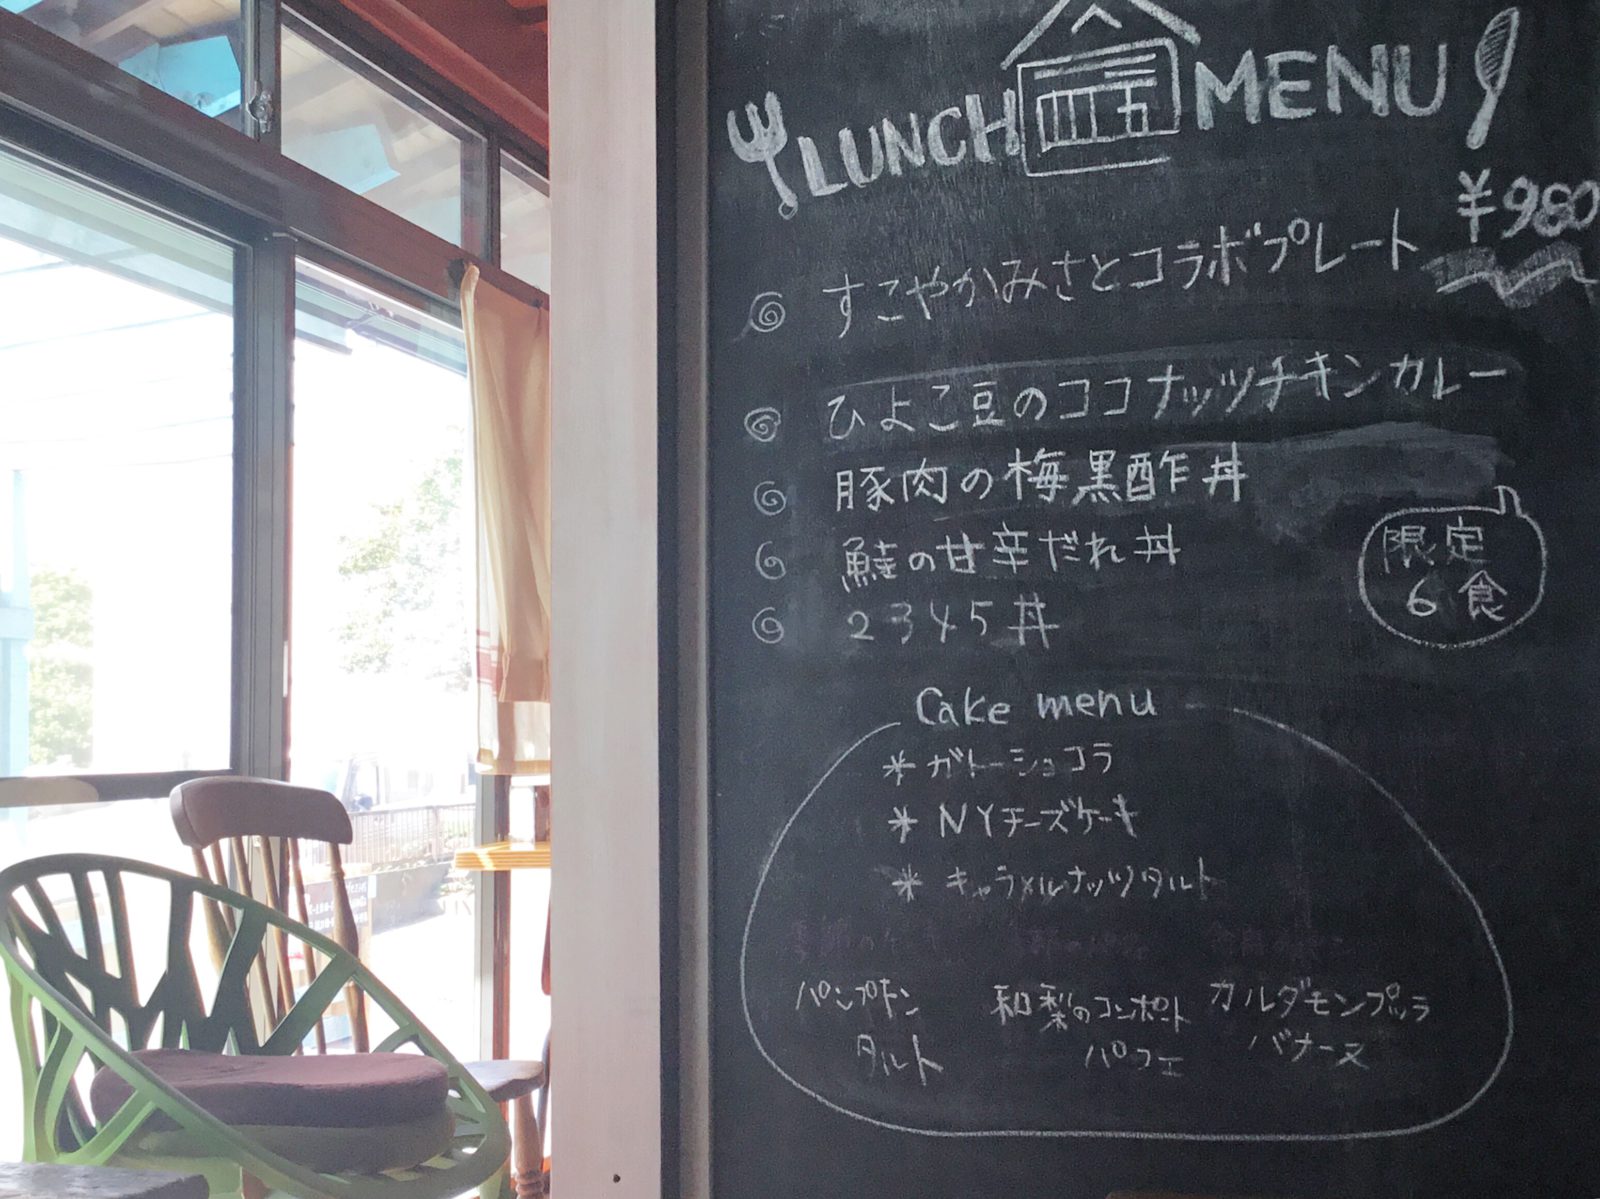 LUNCH MENU
¥980
すこやかみさとコラボプレート
ひよこ豆のココナッツチキンカレー
豚肉の梅黒酢丼
鮭の甘辛だれ丼
2345丼
限定
6食
Cake menu
* ガトーショコラ
* NYチーズケーキ
* キャラメルナッツタルト
パンプキン
タルト
和梨のコンポート
パフェ
カルダモンプッラ
バナーヌ